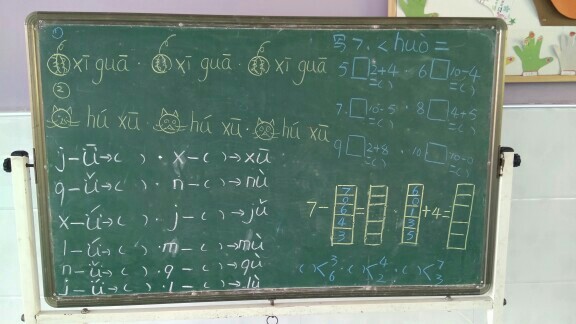 ①
xī guā · xī guā · xī guā
②
hú xū · hú xū · hú xū
j-ū→( ) · x-( )→xū
q-ǔ→( ) · n-( )→nù
x-ú→( ) · j-( )→jǔ
l-ǘ→( ) · m-( )→mù
n-ǚ→( ) · q-( )→qù
写>.<huò=
5□2+4 · 6□10-4
=( ) =( )
7.□ · 8□4+5
=( ) =( )
9□2+8 · 10□
=( ) =( )
7-
7
0
6
4
3
=
6
0
1
3
5
+4=
( )<3 6 · ( )<4 2 · ( )<7 3